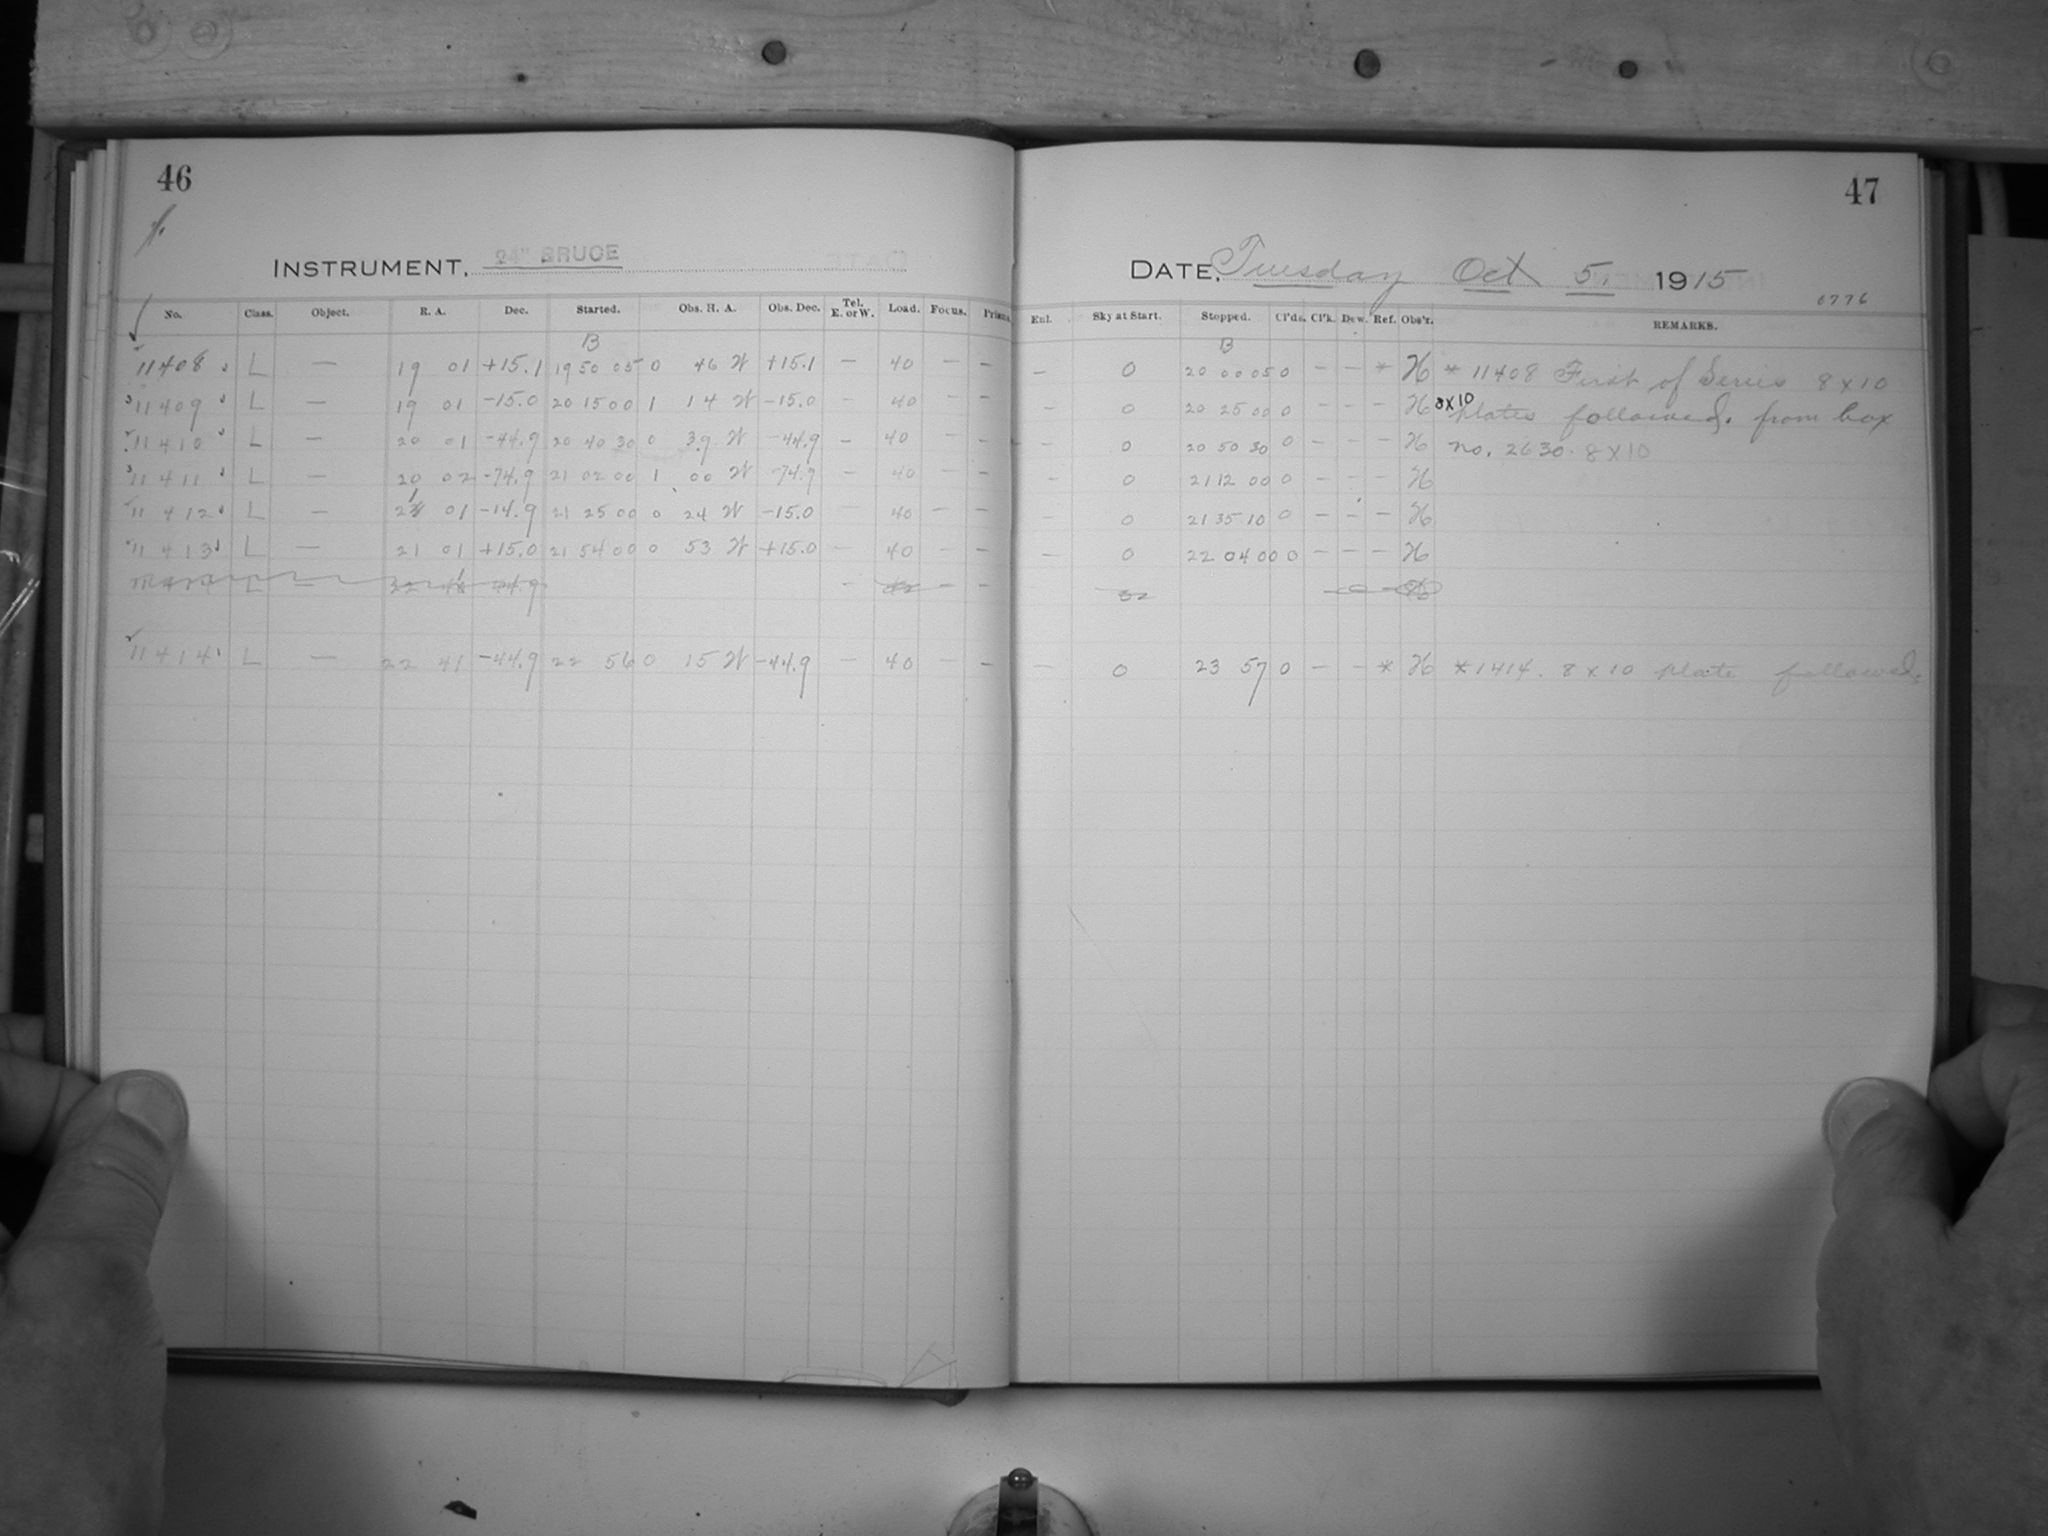 46
INSTRUMENT, 24" BRUCE
No. Class. Object. R. A. Dec. Started. Obs. H. A. Obs. Dec. Tel. E. or W. Load. Focus. Prism.
B
11408 L — 19 01 +15.1 19 50 05 0 46 W +15.1 — 40 — —
11409 L — 19 01 -15.0 20 15 00 1 14 W -15.0 — 40 — —
11410 L — 20 01 -44.9 20 40 30 0 39 W -44.9 — 40 — —
11411 L — 20 02 -74.9 21 02 00 1 00 W -74.9 — 40 — —
11412 L — 21 01 -14.9 21 25 00 0 24 W -15.0 — 40 — —
11413 L — 21 01 +15.0 21 54 00 0 53 W +15.0 — 40 — —
11414 L — 22 41 -44.9 22 56 0 15 W -44.9 — 40 — —
47
DATE, Tuesday Oct 5. 1915
0776
Enl. Sky at Start. Stopped. Cl'ds. Cl'k. Dew. Ref. Obs'r. REMARKS.
B
— 0 20 00 05 0 — — * H * 11408 First of Series 8 x 10
— 0 20 25 00 0 — — — H 8X10 plates followed. from box
— 0 20 50 30 0 — — — H no. 2630. 8 X 10
— 0 21 12 00 0 — — — H
— 0 21 35 10 0 — — — H
— 0 22 04 00 0 — — — H
— 0 23 57 0 — — * H * 1414. 8 x 10 plate followed.